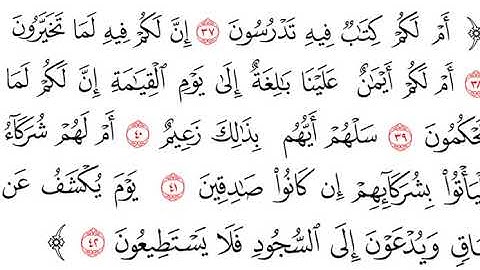 ﴿ أَمْ لَكُمْ كِتَابٌ فِيهِ تَدْرُسُونَ ٣٧ إِنَّ لَكُمْ فِيهِ لَمَا تَخَيَّرُونَ
٣٨ أَمْ لَكُمْ أَيْمَانٌ عَلَيْنَا بَالِغَةٌ إِلَىٰ يَوْمِ الْقِيَامَةِ إِنَّ لَكُمْ لَمَا
تَحْكُمُونَ ٣٩ سَلْهُمْ أَيُّهُم بِذَٰلِكَ زَعِيمٌ ٤٠ أَمْ لَهُمْ شُرَكَاءُ
يَأْتُوا بِشُرَكَائِهِمْ إِن كَانُوا صَادِقِينَ ٤١ يَوْمَ يُكْشَفُ عَن
اقٍ وَيُدْعَوْنَ إِلَى السُّجُودِ فَلَا يَسْتَطِيعُونَ ٤٢ ﴾